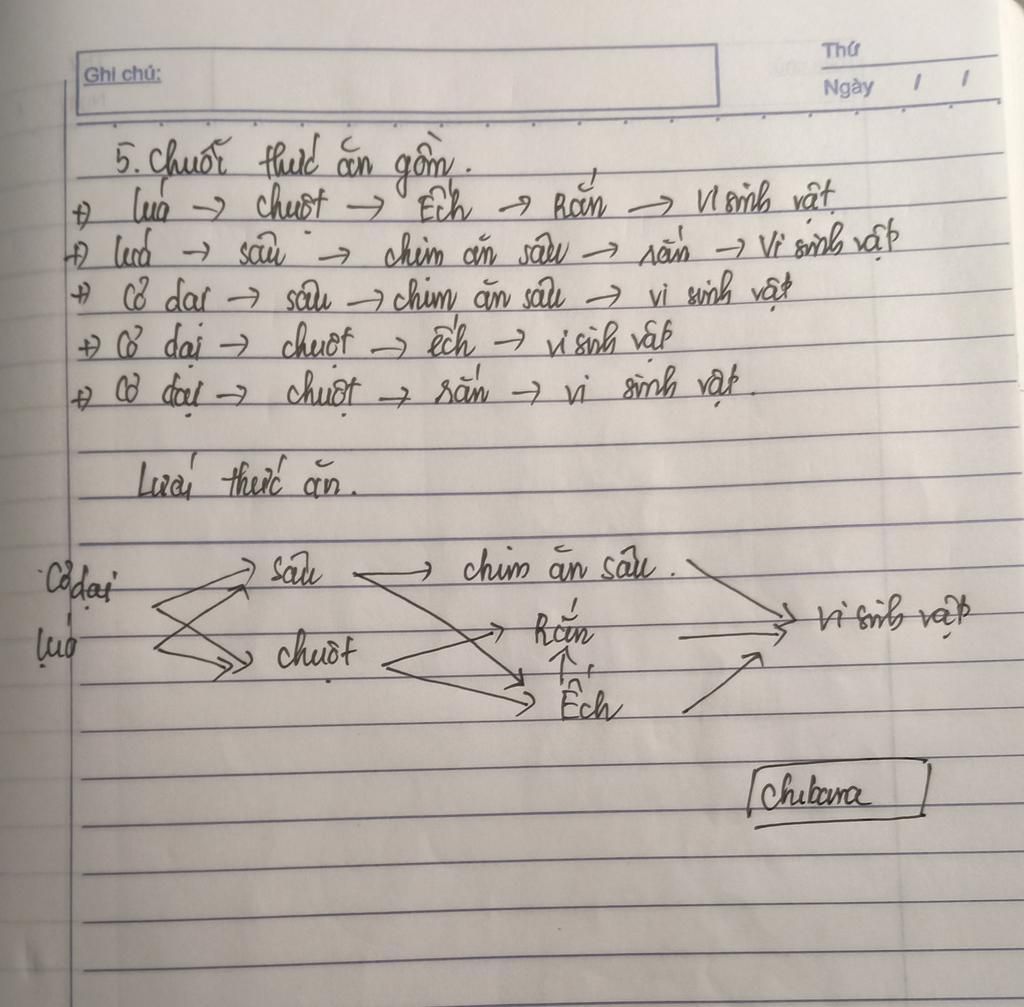 Ghi chú:
Thứ
Ngày / /
5. Chuỗi thức ăn gồm.
+) lúa → chuột → Ếch → Rắn → Vi sinh vật
+) lúa → sâu → chim ăn sâu → rắn → Vi sinh vật
+) Cỏ dại → sâu → chim ăn sâu → vi sinh vật
+) Cỏ dại → chuột → ếch → vi sinh vật
+) Cỏ dại → chuột → rắn → vi sinh vật.
Lưới thức ăn.
Cỏ dại → sâu → chim ăn sâu.
lúa → chuột → Rắn → vi sinh vật
↑
Ếch
Chibara